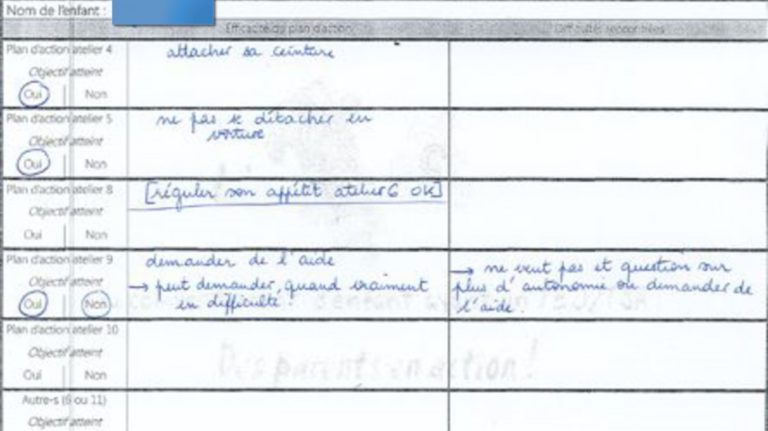 Nom de l'enfant :
Efficacité du plan d'action Difficultés rencontrées
Plan d'action atelier 4 attacher sa ceinture
Objectif atteint
Oui | Non
Plan d'action atelier 5 ne pas se détacher en
voiture
Objectif atteint
Oui | Non
Plan d'action atelier 8 [réguler son appétit atelier 6 OK]
Objectif atteint
Oui | Non
Plan d'action atelier 9 demander de l'aide
Objectif atteint → peut demander, quand vraiment
en difficulté
Oui | Non
→ ne veut pas et question sur
plus d'autonomie ou demander de
l'aide.
Plan d'action atelier 10
Objectif atteint
Oui | Non
Des parents en action !
Autre-s (6 ou 11)
Objectif atteint